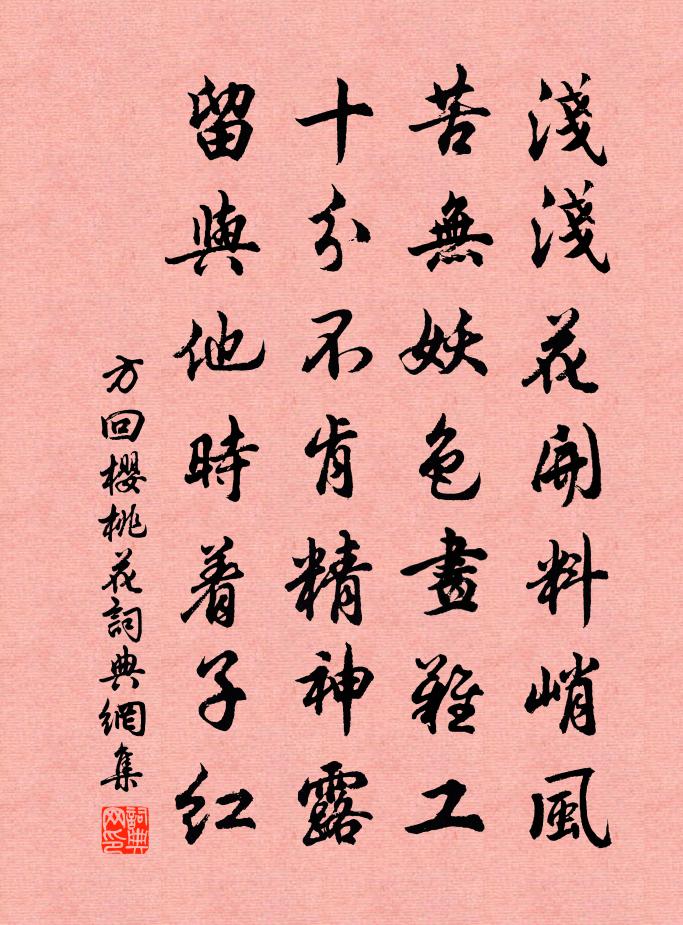 淺淺花開料峭風
苦無妖色畫難工
十分不肯精神露
留與他時着子紅
方回櫻桃花詞典網集
詞典网印